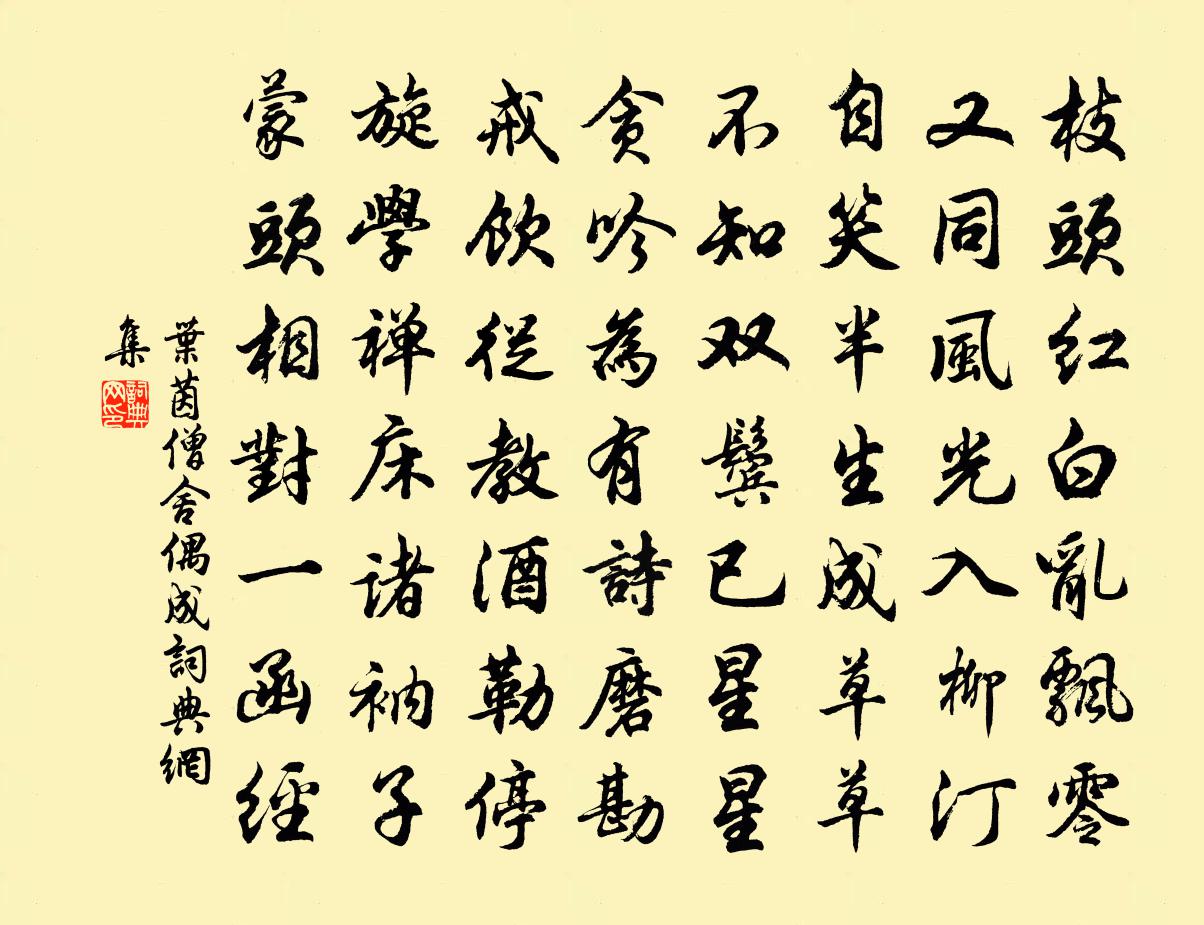 枝頭紅白亂飄零
又同風光入柳汀
自笑半生成草草
不知双鬓已星星
貪吟為有詩磨勘
戒飲從教酒勒停
旋學禅床諸衲子
蒙頭相對一函經
葉茵僧舍偶成詞典網
集
詞典网印